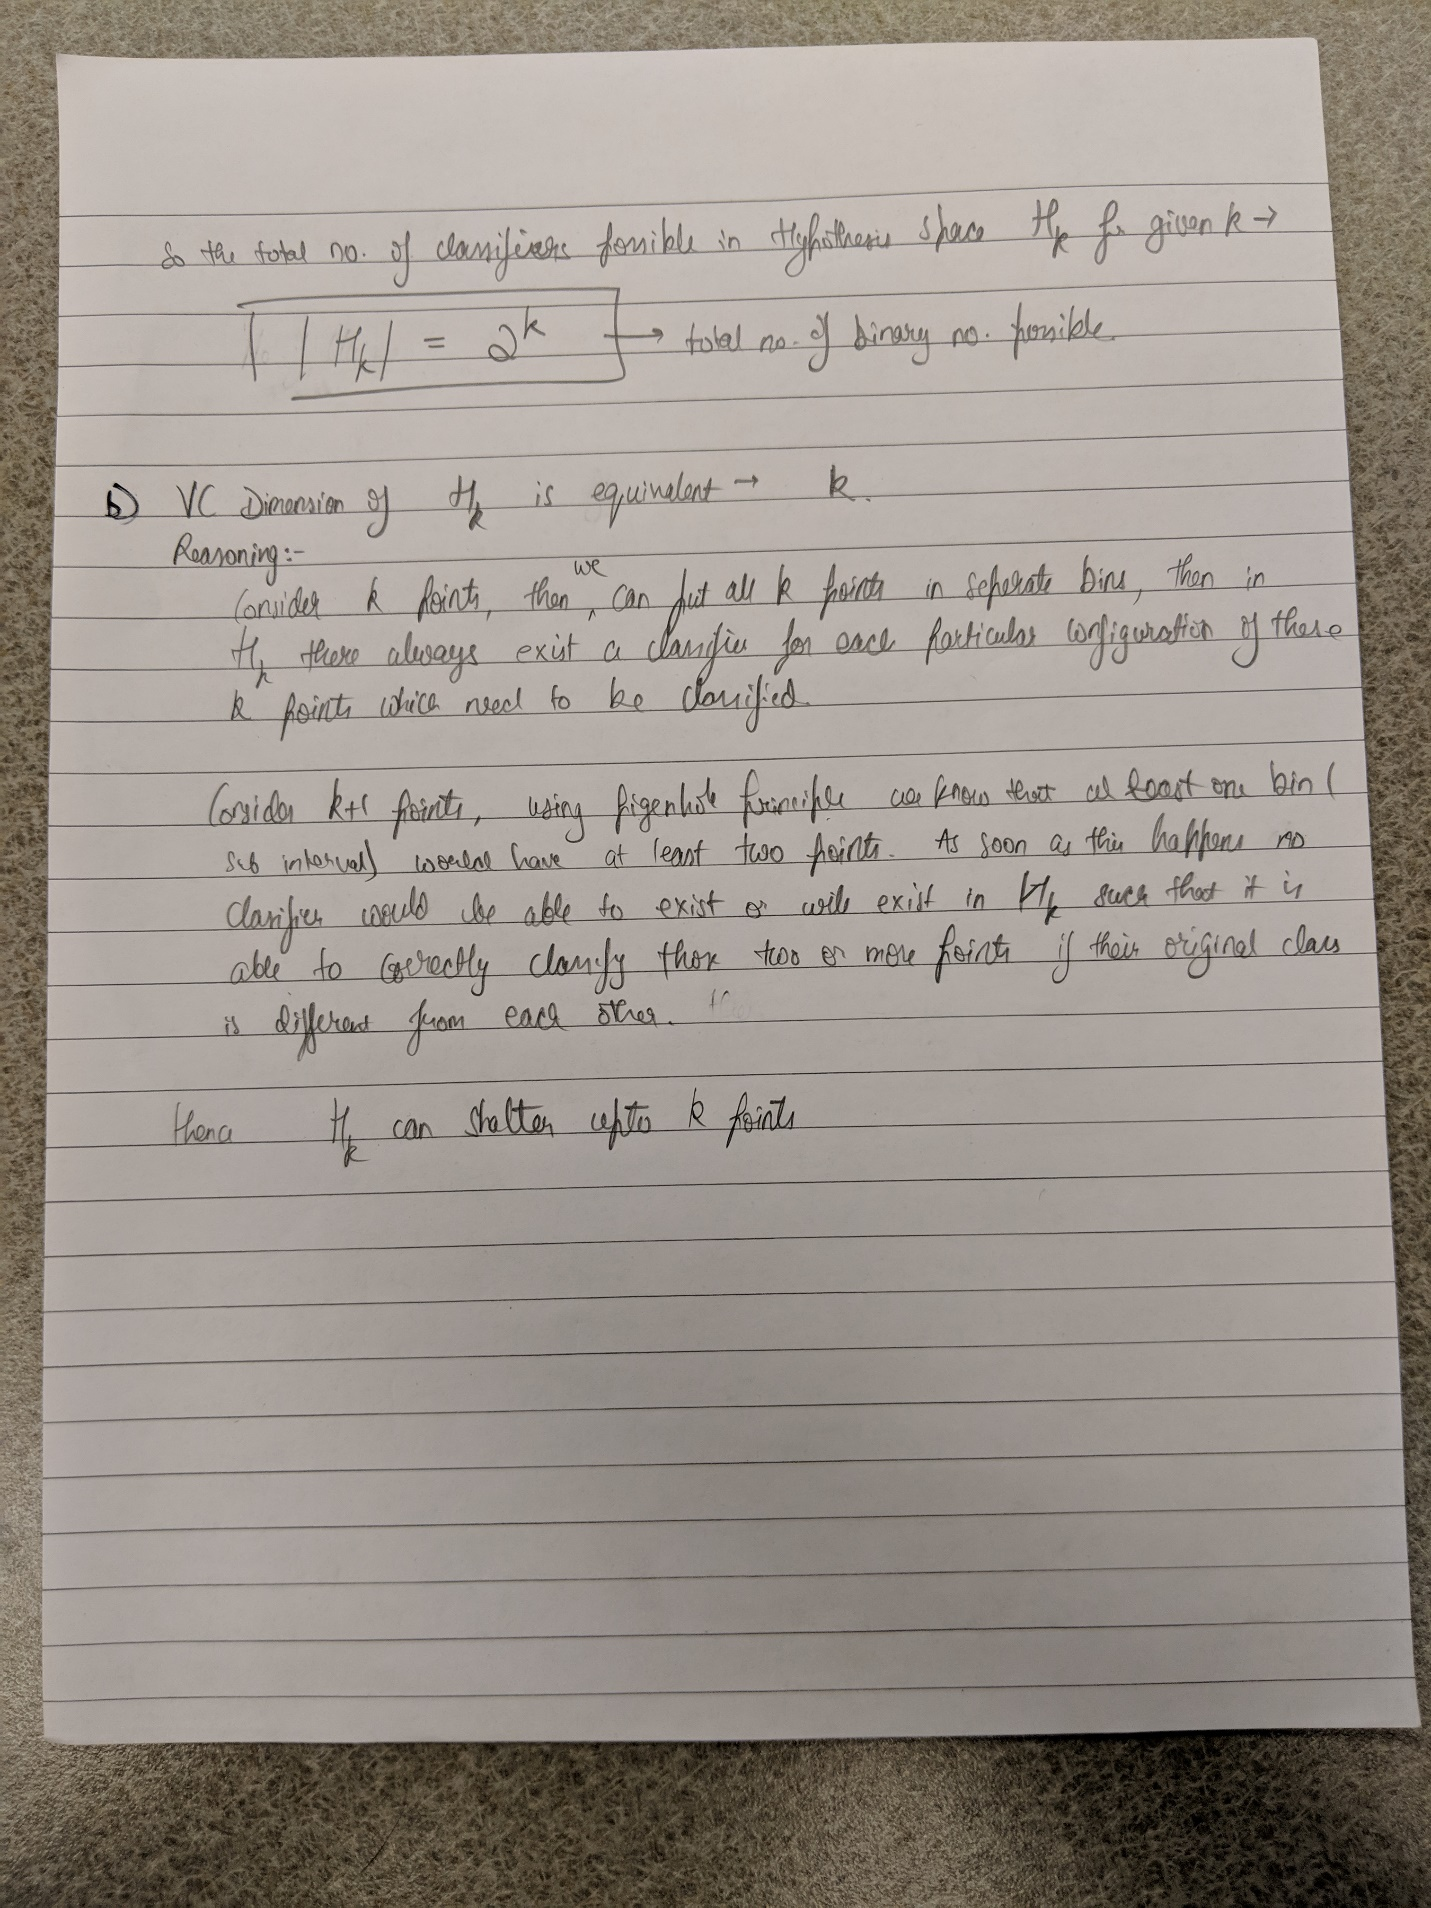 So the total no. of classifiers possible in Hypothesis space H_k for given k →
|H_k| = 2^k → total no. of binary no. possible.
b) VC Dimension of H_k is equivalent → k.
Reasoning:-
Consider k points, then we can put all k points in seperate bins, then in
H_k there always exist a classifier for each particular configuration of these
k points which need to be classified.
Consider k+1 points, using pigenhole principle we know that at least one bin (
sub interval) would have at least two points. As soon as this happens no
classifier would be able to exist or will exist in H_k such that it is
able to correctly classify those two or more points if their original class
is different from each other.
Hence H_k can shatter upto k points